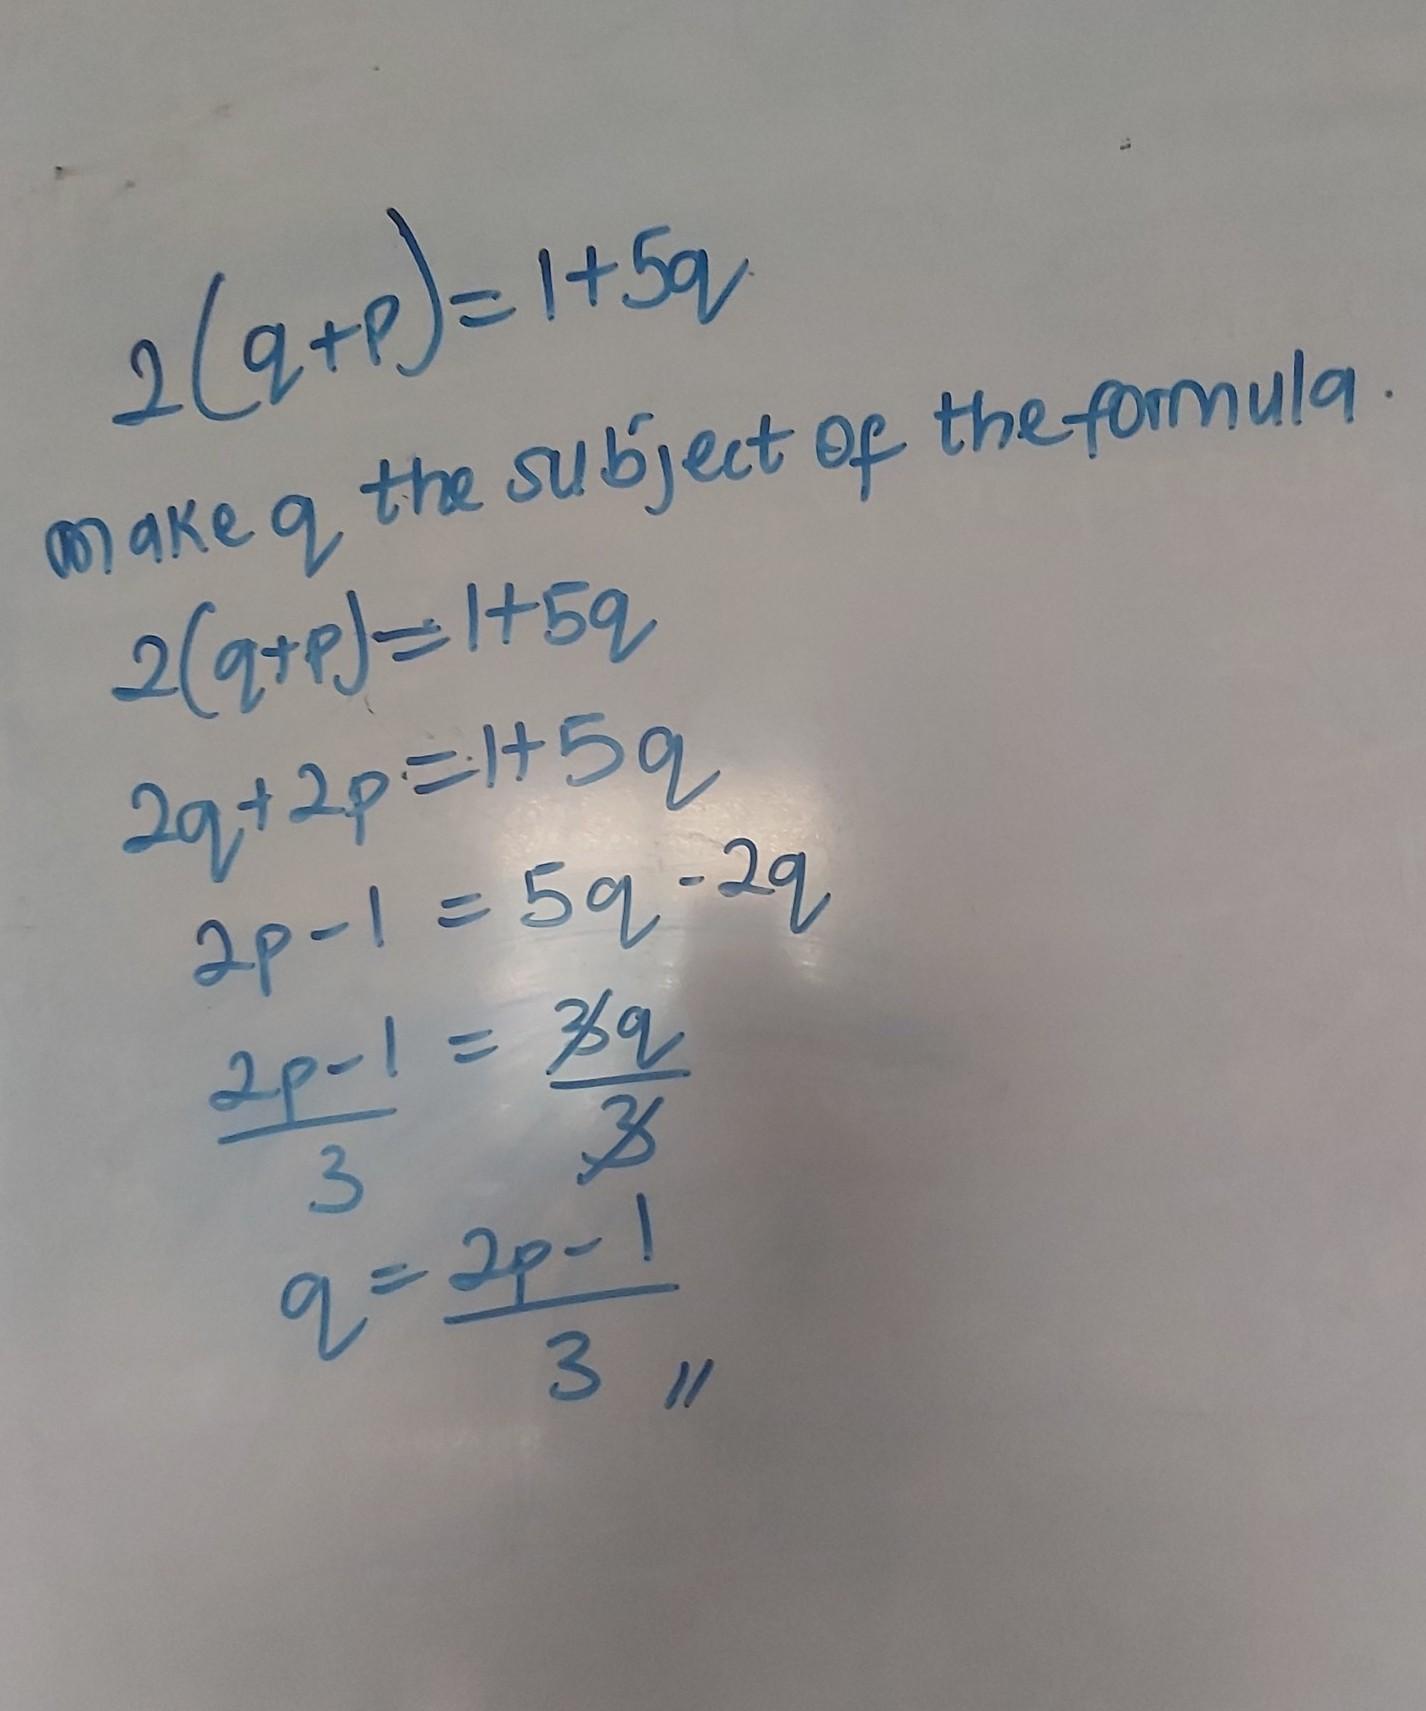 2(q+p)=1+5q
make q the subject of the formula.
2(q+p)=1+5q
2q+2p=1+5q
2p-1 = 5q-2q
2p-1 = 3q
3 3
q = 2p-1
3 //